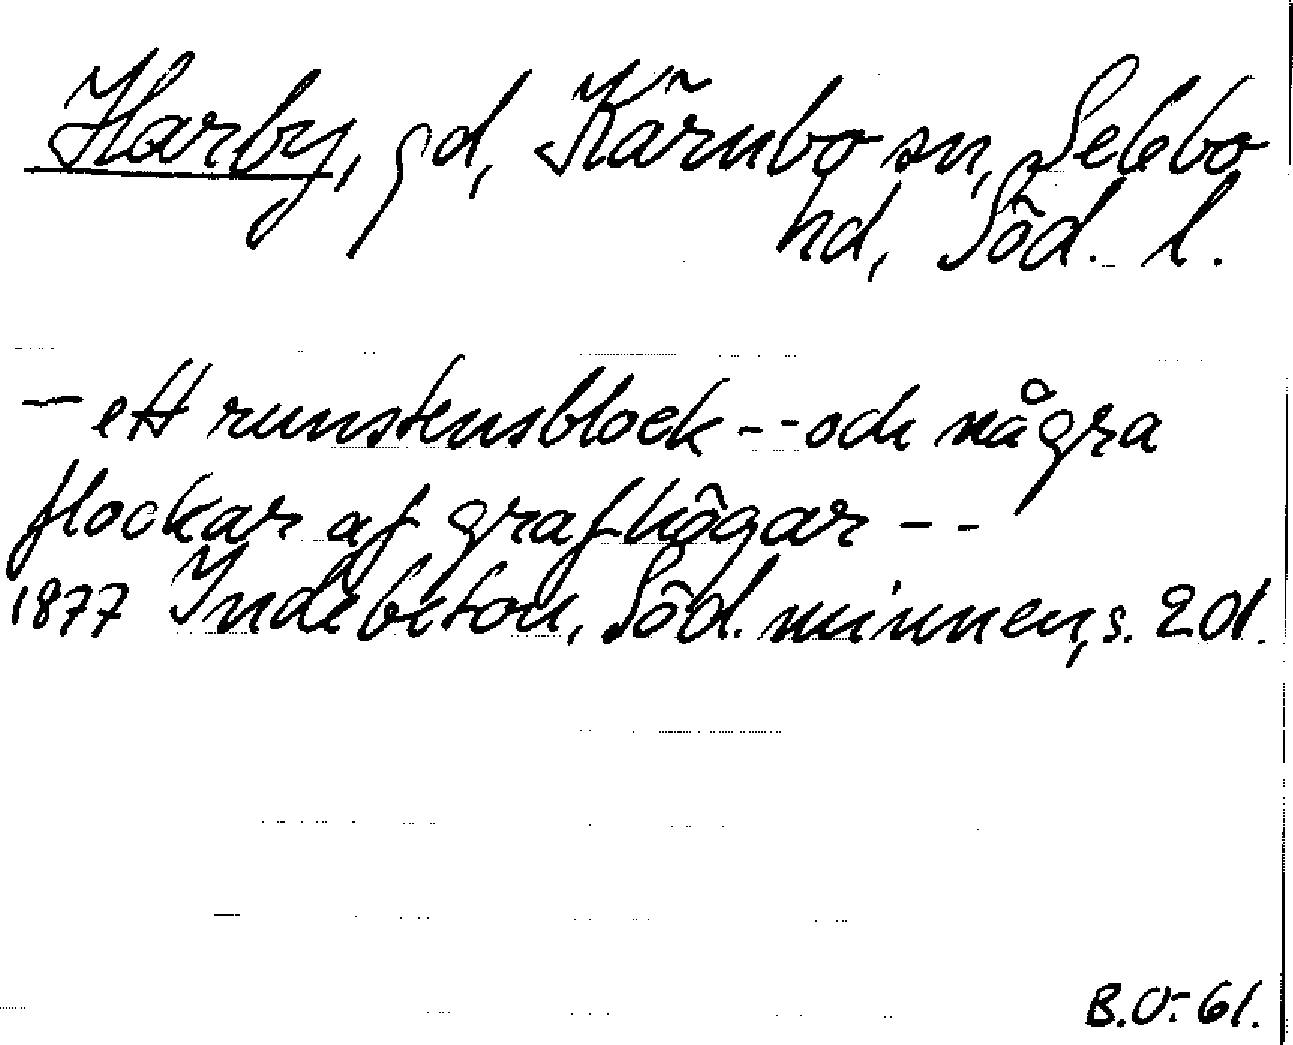 Harby, gd, Kärnbo sn, Selebo
hd, Söd. l.
– ett runstensblock -- och några
flockar af grafhögar --
1877 Indebetou, Söd. minnen, s. 201.
B.O. 61.